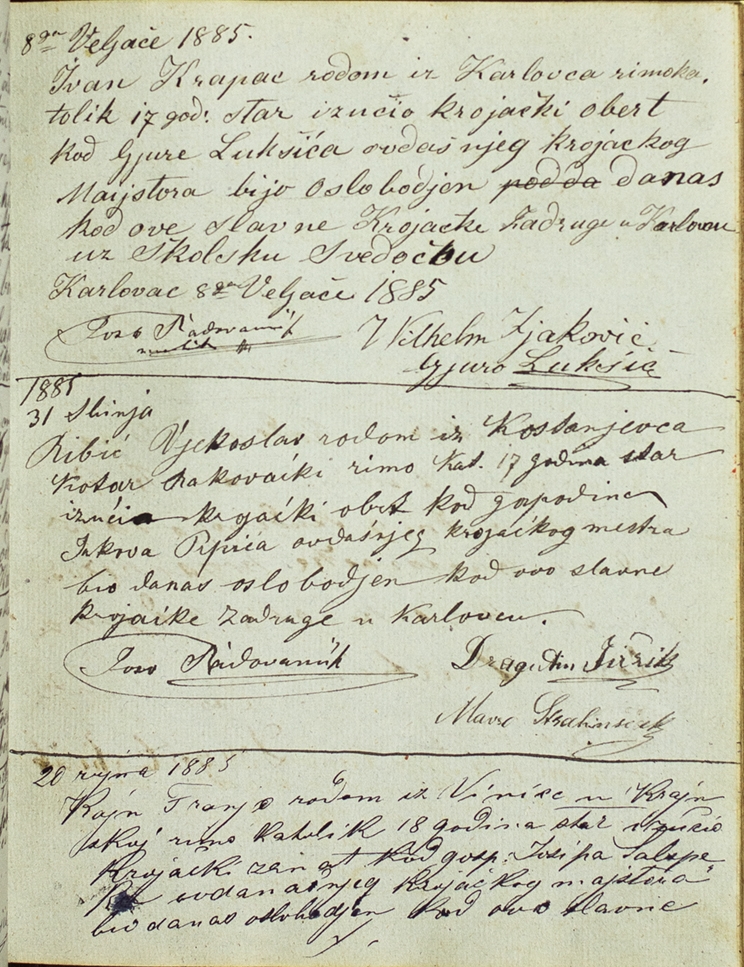 8ga Veljače 1885.
Ivan Krapac rodom iz Karlovca rimoka,
tolik 17 god: star izučio krojački obert
kod Gjure Lukšića ovdašnjeg krojackog
Maijstora bijo oslobodjen podda danas
kod ove slavne Krojačke Zadruge u Karlovcu
uz Školsku Svedočbu
Karlovac 8ga Veljače 1885
Joso Radovanić
Wilhelm Zjaković
Gjuro Lukšić
1885
31 Sbinja
Ribić Vjekoslav rodom iz Kostanjevca
Kotar Jakovački rimo kat. 17 godina star
izučio krojački obrt kod gospodina
Jakova Piprića ovdašnjeg krojačkog mestra
bio danas oslobodjen kod ovo slavne
krojačke zadruge u Karlovcu.
Joso Radovanić
Dragutin
Mavro
20 rujna 1885
Kajn Franjo rodom iz Vinice u Krajn
skoj rimo katolik 18 godina star izučio
krojački zanat kod gosp: Josipa Salope
ovdanašnjeg krojačkog majstora
bio danas oslobodjen kod ovo slavne